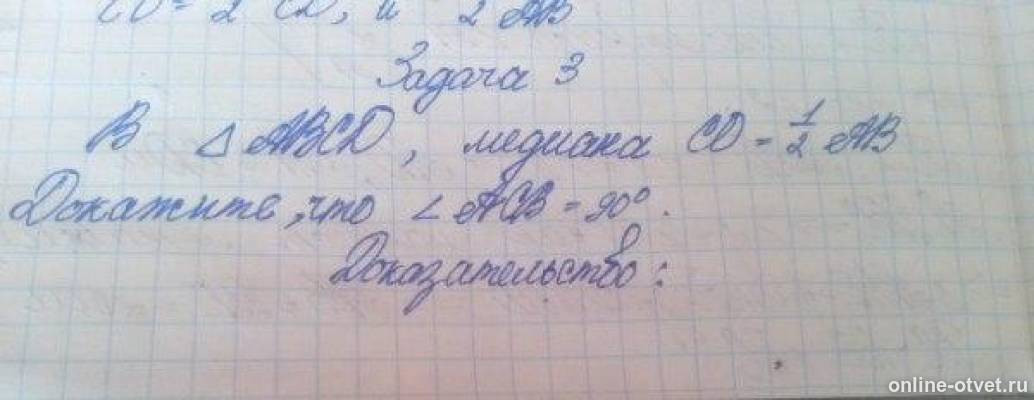 CD = 2 CD, и 2 AB
Задача 3
В △ ABCD, медиана CD = 1/2 AB
Докажите, что ∠ ACB = 90°.
Доказательство:
online-otvet.ru